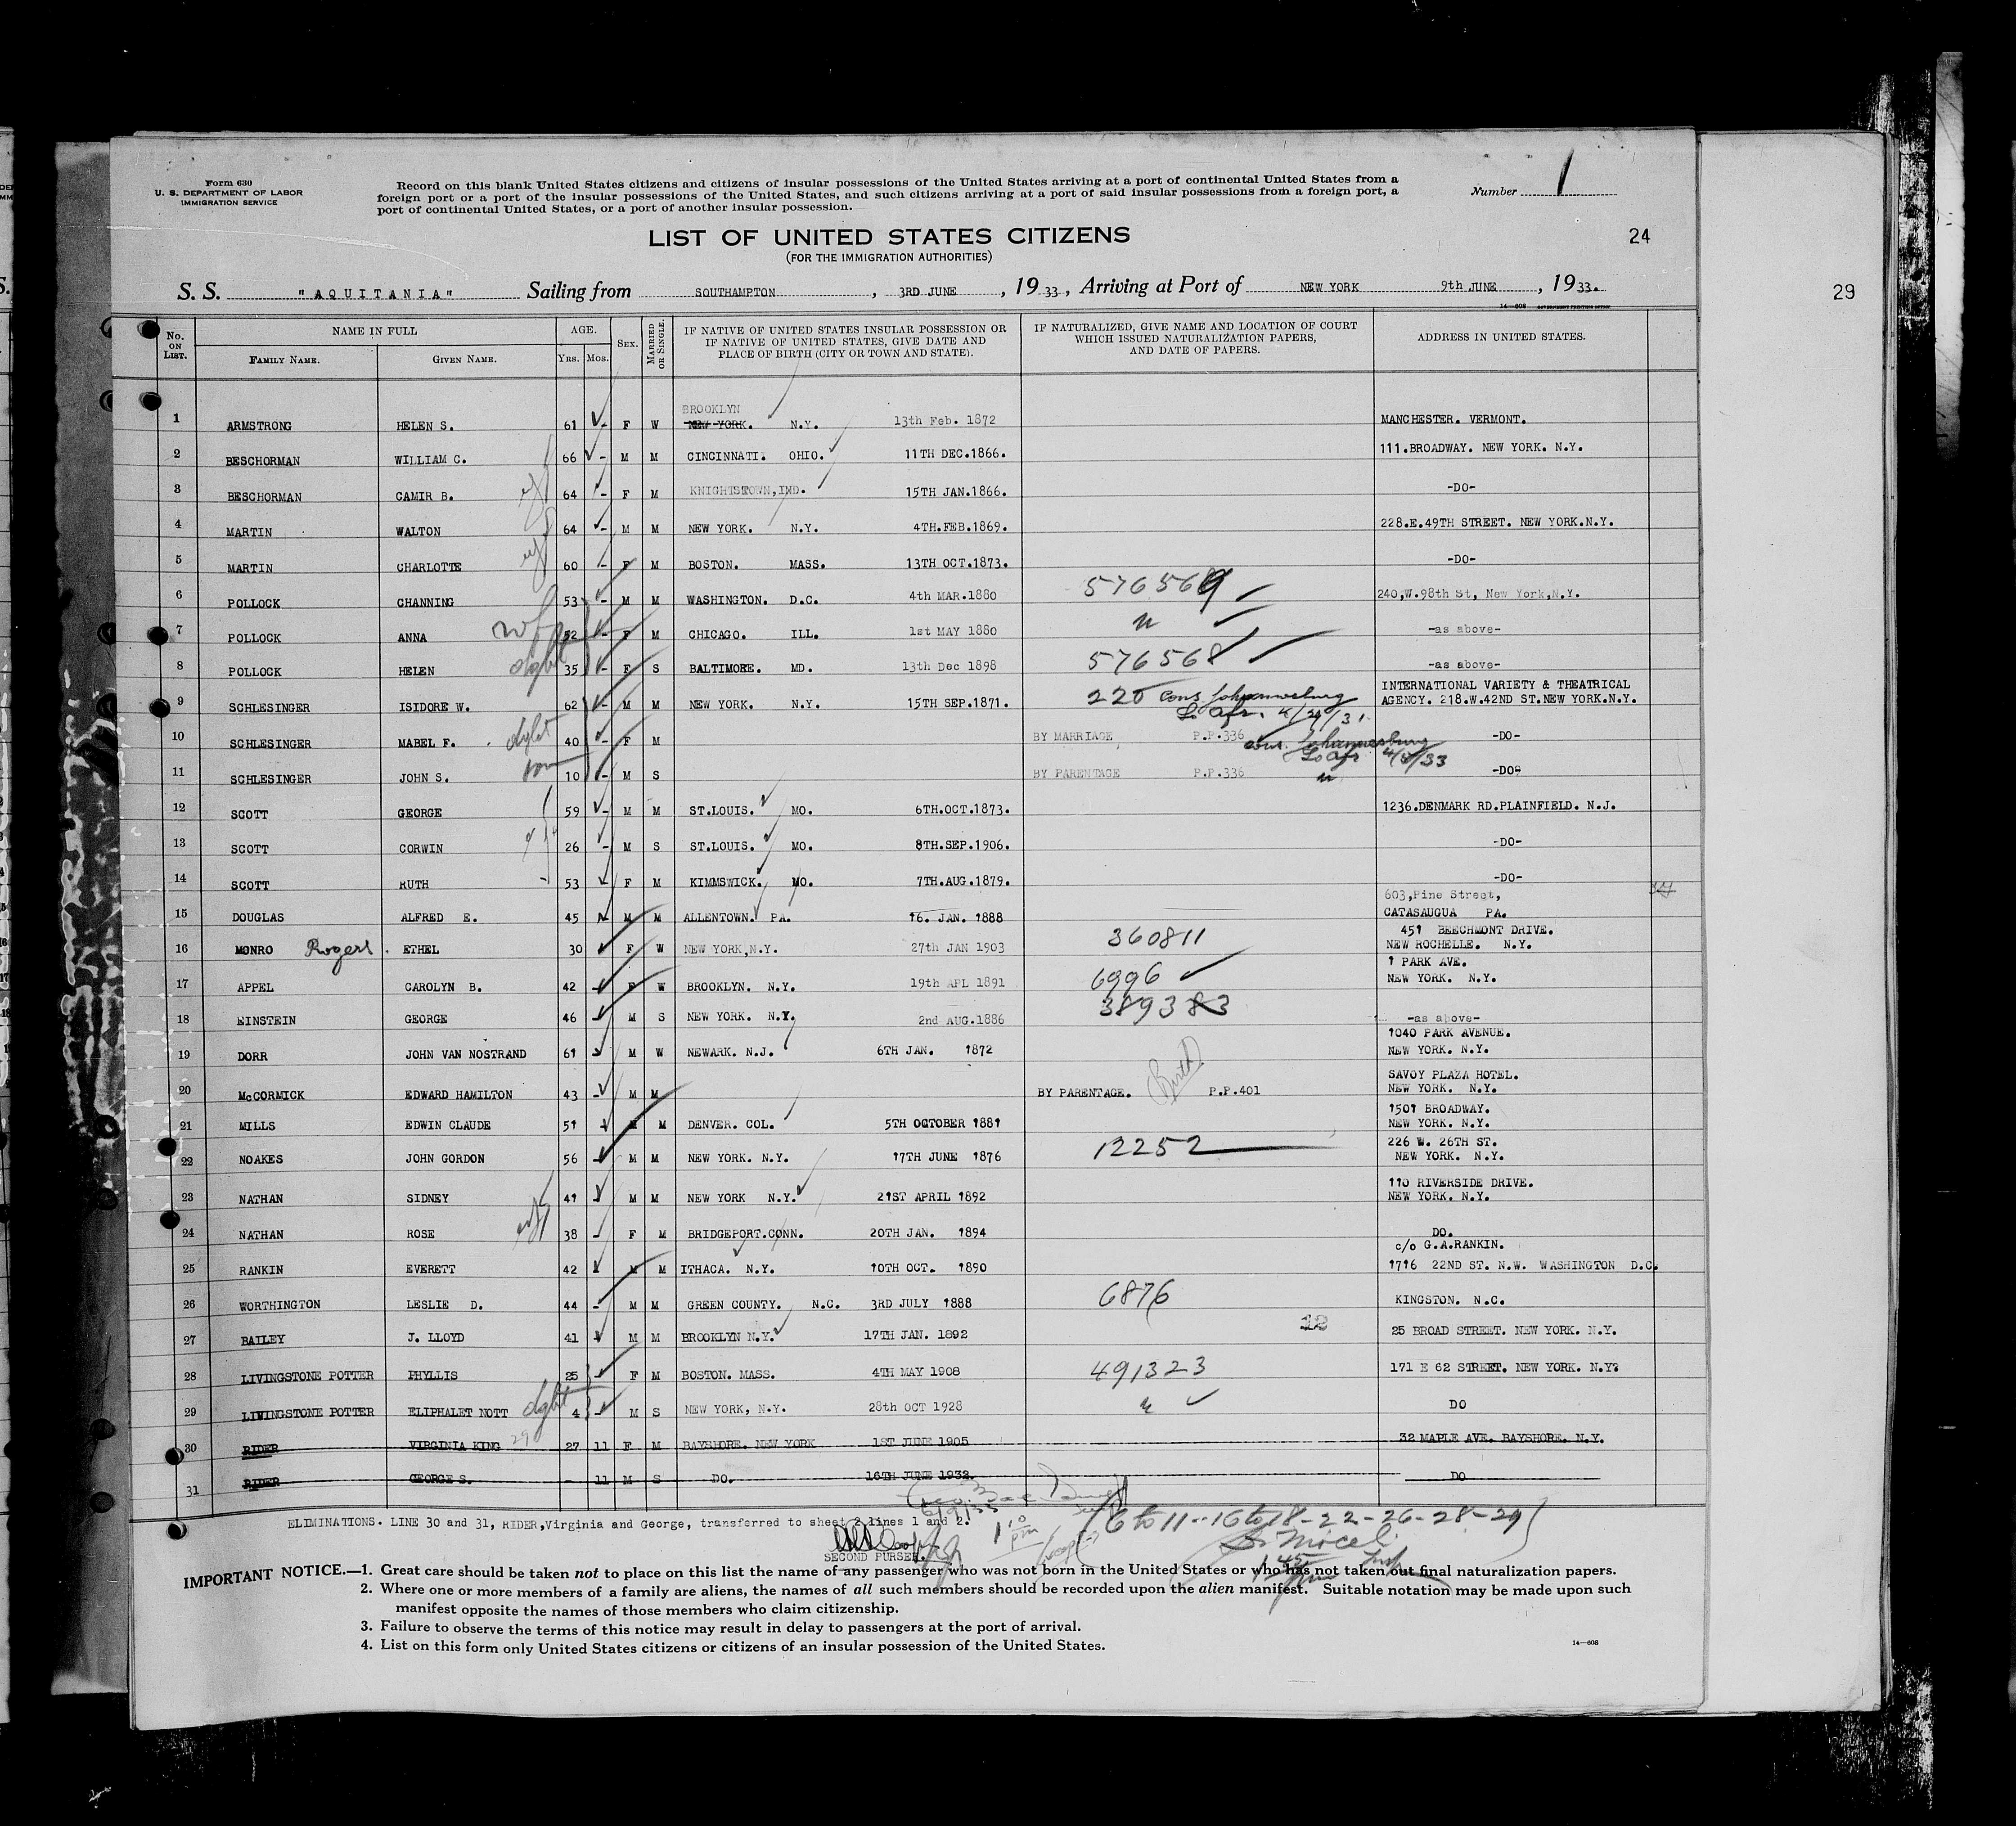 Form 630
U. S. DEPARTMENT OF LABOR
IMMIGRATION SERVICE
Record on this blank United States citizens and citizens of insular possessions of the United States arriving at a port of continental United States from a
foreign port or a port of the insular possessions of the United States, and such citizens arriving at a port of said insular possessions from a foreign port, a
port of continental United States, or a port of another insular possession.
Number 1
LIST OF UNITED STATES CITIZENS
(FOR THE IMMIGRATION AUTHORITIES)
24
29
S. S. "AQUITANIA" Sailing from SOUTHAMPTON, 3RD JUNE, 1933, Arriving at Port of NEW YORK 9th JUNE, 1933.
14—608 GOVERNMENT PRINTING OFFICE
No. ON LIST. NAME IN FULL FAMILY NAME. GIVEN NAME. AGE. YRS. MOS. SEX. MARRIED OR SINGLE. IF NATIVE OF UNITED STATES INSULAR POSSESSION OR IF NATIVE OF UNITED STATES, GIVE DATE AND PLACE OF BIRTH (CITY OR TOWN AND STATE). IF NATURALIZED, GIVE NAME AND LOCATION OF COURT WHICH ISSUED NATURALIZATION PAPERS, AND DATE OF PAPERS. ADDRESS IN UNITED STATES.
BROOKLYN
1 ARMSTRONG HELEN S. 61 - F W NEW YORK. N.Y. 13th Feb. 1872 MANCHESTER. VERMONT.
2 BESCHORMAN WILLIAM C. 66 - M M CINCINNATI. OHIO. 11TH DEC.1866. 111.BROADWAY. NEW YORK. N.Y.
3 BESCHORMAN CAMIR B. wf 64 - F M KNIGHTSTOWN,IND. 15TH JAN.1866. -DO-
4 MARTIN WALTON 64 - M M NEW YORK. N.Y. 4TH.FEB.1869. 228.E.49TH STREET. NEW YORK.N.Y.
5 MARTIN CHARLOTTE wf 60 - F M BOSTON. MASS. 13TH OCT.1873. -DO-
6 POLLOCK CHANNING 53 - M M WASHINGTON. D.C. 4th MAR.1880 576569 240,W.98th St, New York,N.Y.
7 POLLOCK ANNA wf 52 - F M CHICAGO. ILL. 1st MAY 1880 " -as above-
8 POLLOCK HELEN dght 35 - F S BALTIMORE. MD. 13th Dec 1898 576568 -as above-
9 SCHLESINGER ISIDORE W. 62 - M M NEW YORK. N.Y. 15TH SEP.1871. 220 Cons Johannesburg INTERNATIONAL VARIETY & THEATRICAL
So. Afr. AGENCY. 218.W.42ND ST.NEW YORK.N.Y.
10 SCHLESINGER MABEL F. dght 40 - F M BY MARRIAGE P.P.336 Cons. Johannesburg -DO-
So Afr
11 SCHLESINGER JOHN S. son 10 - M S BY PARENTAGE P.P.336 " -DO-
12 SCOTT GEORGE 59 - M M ST.LOUIS. MO. 6TH.OCT.1873. 1236.DENMARK RD.PLAINFIELD. N.J.
13 SCOTT CORWIN 26 - M S ST.LOUIS. MO. 8TH.SEP.1906. -DO-
14 SCOTT RUTH 53 - F M KIMMSWICK. MO. 7TH.AUG.1879. -DO-
603,Pine Street,
15 DOUGLAS ALFRED E. 45 M M ALLENTOWN. PA. 16. JAN. 1888 CATASAUGUA PA.
451 BEECHMONT DRIVE.
16 MONRO Rogers ETHEL 30 F W NEW YORK,N.Y. 27th JAN 1903 360811 NEW ROCHELLE. N.Y.
1 PARK AVE.
17 APPEL CAROLYN B. 42 - F W BROOKLYN. N.Y. 19th APL 1891 6996 NEW YORK. N.Y.
18 EINSTEIN GEORGE 46 - M S NEW YORK. N.Y. 2nd AUG.1886 389383 -as above-
1040 PARK AVENUE.
19 DORR JOHN VAN NOSTRAND 61 - M W NEWARK. N.J. 6TH JAN. 1872 NEW YORK. N.Y.
SAVOY PLAZA HOTEL.
20 McCORMICK EDWARD HAMILTON 43 - M M BY PARENTAGE. (Birth) P.P.401 NEW YORK. N.Y.
1501 BROADWAY.
21 MILLS EDWIN CLAUDE 51 - M M DENVER. COL. 5TH OCTOBER 1881 NEW YORK. N.Y.
226 W. 26TH ST.
22 NOAKES JOHN GORDON 56 - M M NEW YORK. N.Y. 17TH JUNE 1876 12252 NEW YORK. N.Y.
110 RIVERSIDE DRIVE.
23 NATHAN SIDNEY 41 - M M NEW YORK N.Y. 21ST APRIL 1892 NEW YORK. N.Y.
24 NATHAN ROSE wf 38 - F M BRIDGEPORT.CONN. 20TH JAN. 1894 DO.
c/o G.A.RANKIN.
25 RANKIN EVERETT 42 M M ITHACA. N.Y. 10TH OCT. 1890 1716 22ND ST. N.W. WASHINGTON D.C.
26 WORTHINGTON LESLIE D. 44 - M M GREEN COUNTY. N.C. 3RD JULY 1888 6876 KINGSTON. N.C.
27 BAILEY J. LLOYD 41 M M BROOKLYN N.Y. 17TH JAN. 1892 12 25 BROAD STREET. NEW YORK. N.Y.
28 LIVINGSTONE POTTER PHYLLIS 25 - F M BOSTON. MASS. 4TH MAY 1908 491323 171 E 62 STREET. NEW YORK. N.Y?
29 LIVINGSTONE POTTER ELIPHALET NOTT dght 4 - M S NEW YORK, N.Y. 28th OCT 1928 " DO
30 RIDER VIRGINIA KING 29 27 11 F M BAYSHORE. NEW YORK 1ST JUNE 1905 32 MAPLE AVE. BAYSHORE. N.Y.
31 RIDER GEORGE S. - 11 M S DO. 16TH JUNE 1932. DO
6/9/33
ELIMINATIONS. LINE 30 and 31, RIDER,Virginia and George, transferred to sheet 2 lines 1 and 2.
(6 to 11--16 to 18-22-26-28-29)
SECOND PURSER.
IMPORTANT NOTICE.—1. Great care should be taken not to place on this list the name of any passenger who was not born in the United States or who has not taken out final naturalization papers.
2. Where one or more members of a family are aliens, the names of all such members should be recorded upon the alien manifest. Suitable notation may be made upon such
manifest opposite the names of those members who claim citizenship.
3. Failure to observe the terms of this notice may result in delay to passengers at the port of arrival.
4. List on this form only United States citizens or citizens of an insular possession of the United States.
14—608